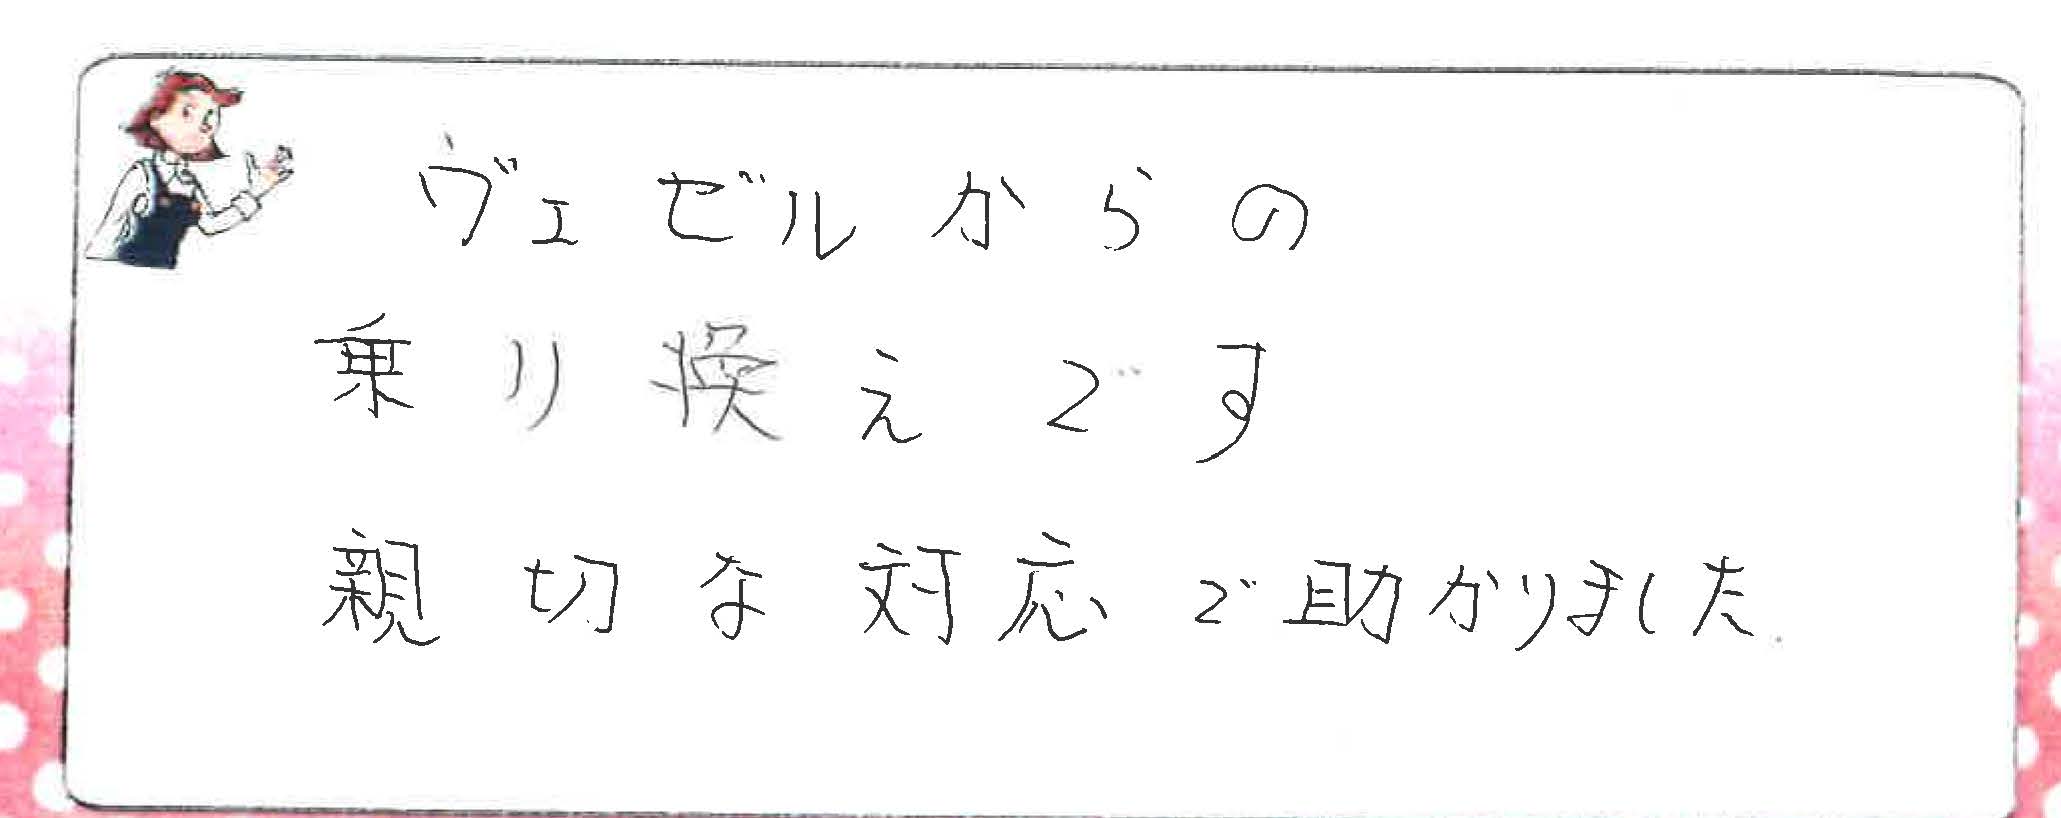 ヴェゼルからの
乗り換えです
親切な対応で助かりました.